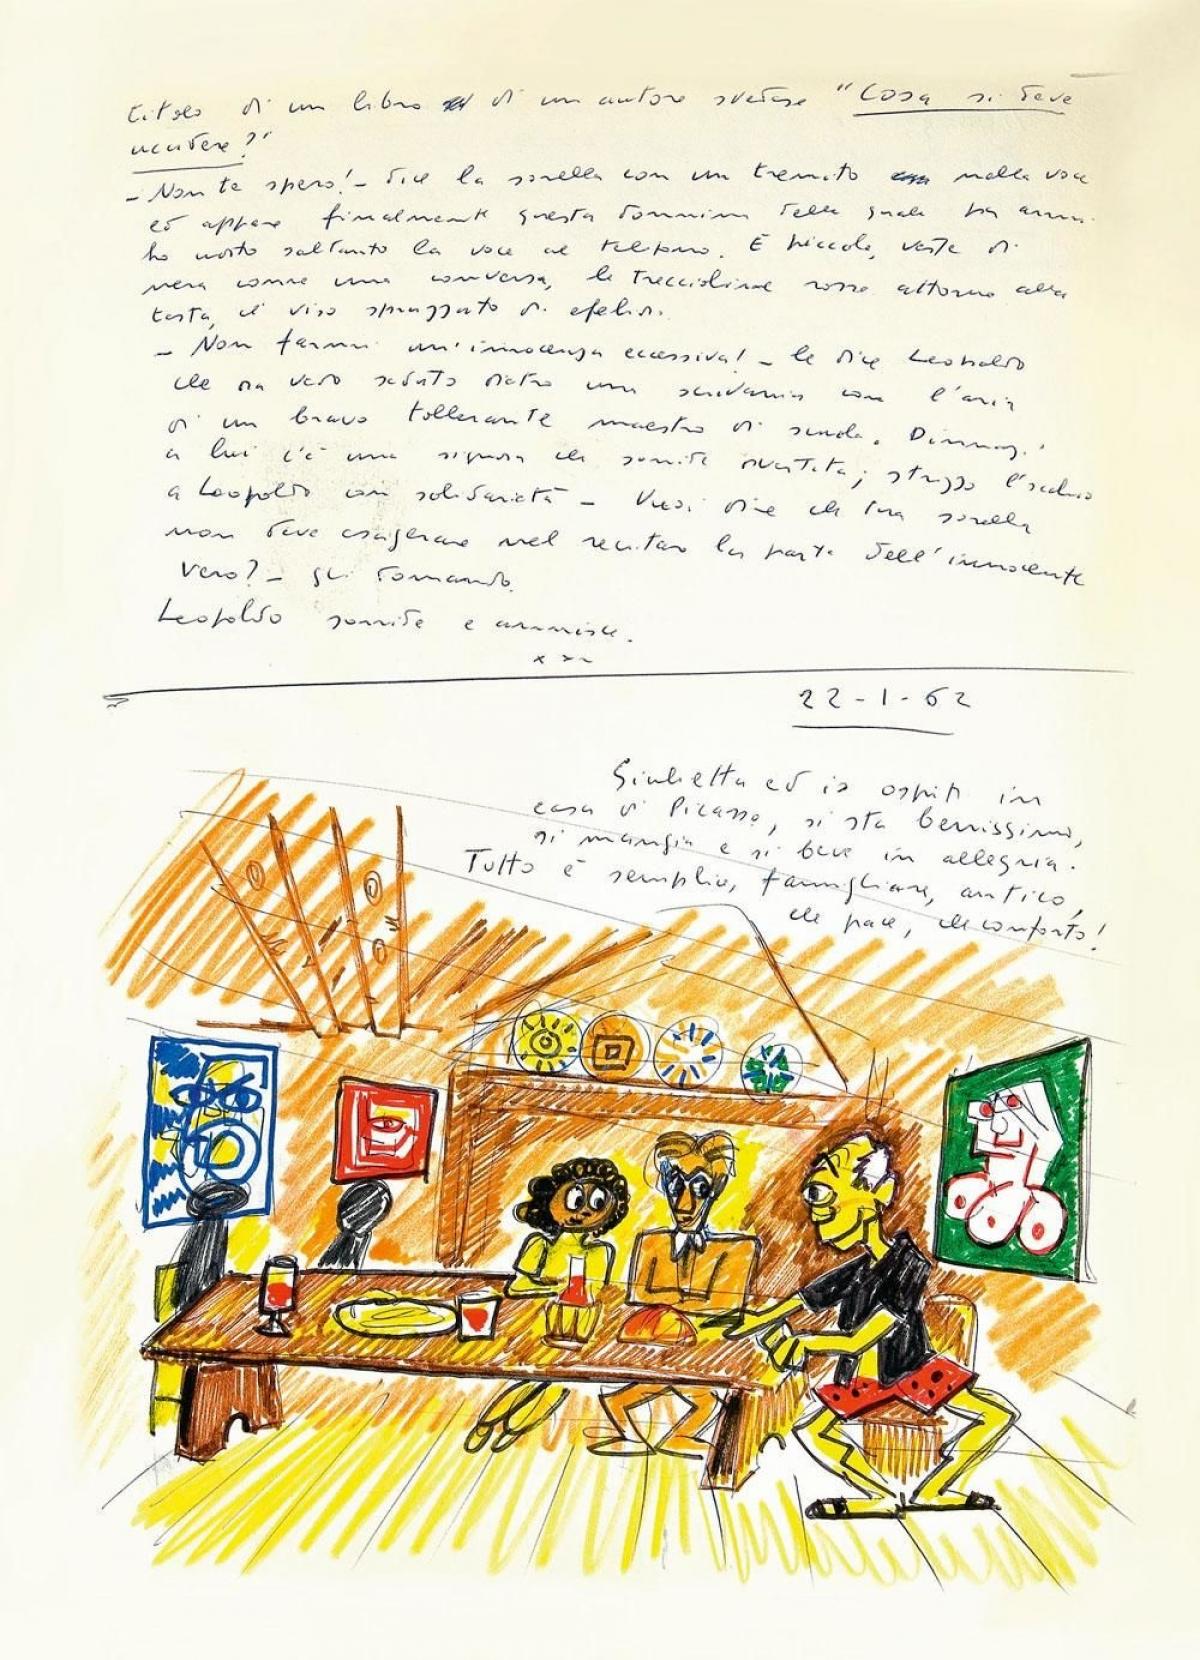 titolo di un libro di un autore svedese "Cosa si deve
uccidere?"
- Non te spero! - dice la sorella con un tremito nella voce
ed appare finalmente questa donnina della quale per anni
ho udito soltanto la voce al telefono. È piccola, veste di
nero come una conversa, le treccioline rosse attorno alla
testa, il viso spruzzato di efelidi.
- Non farmi un'innocenza eccessiva! - le dice Leopoldo
che ora vedo seduto dietro una scrivania con l'aria
di un bravo tollerante maestro di scuola. Dinnanzi
a lui c'è una signora che sorride divertita; strizzo l'occhio
a Leopoldo con solidarietà - Vuoi dire che tua sorella
non deve esagerare nel recitare la parte dell'innocente
vero? - gli domando.
Leopoldo sorride e annuisce.
22-1-62
Giulietta ed io ospiti in
casa di Picasso, si sta benissimo,
si mangia e si beve in allegria.
Tutto è semplice, famigliare, antico,
che pace, che conforto!